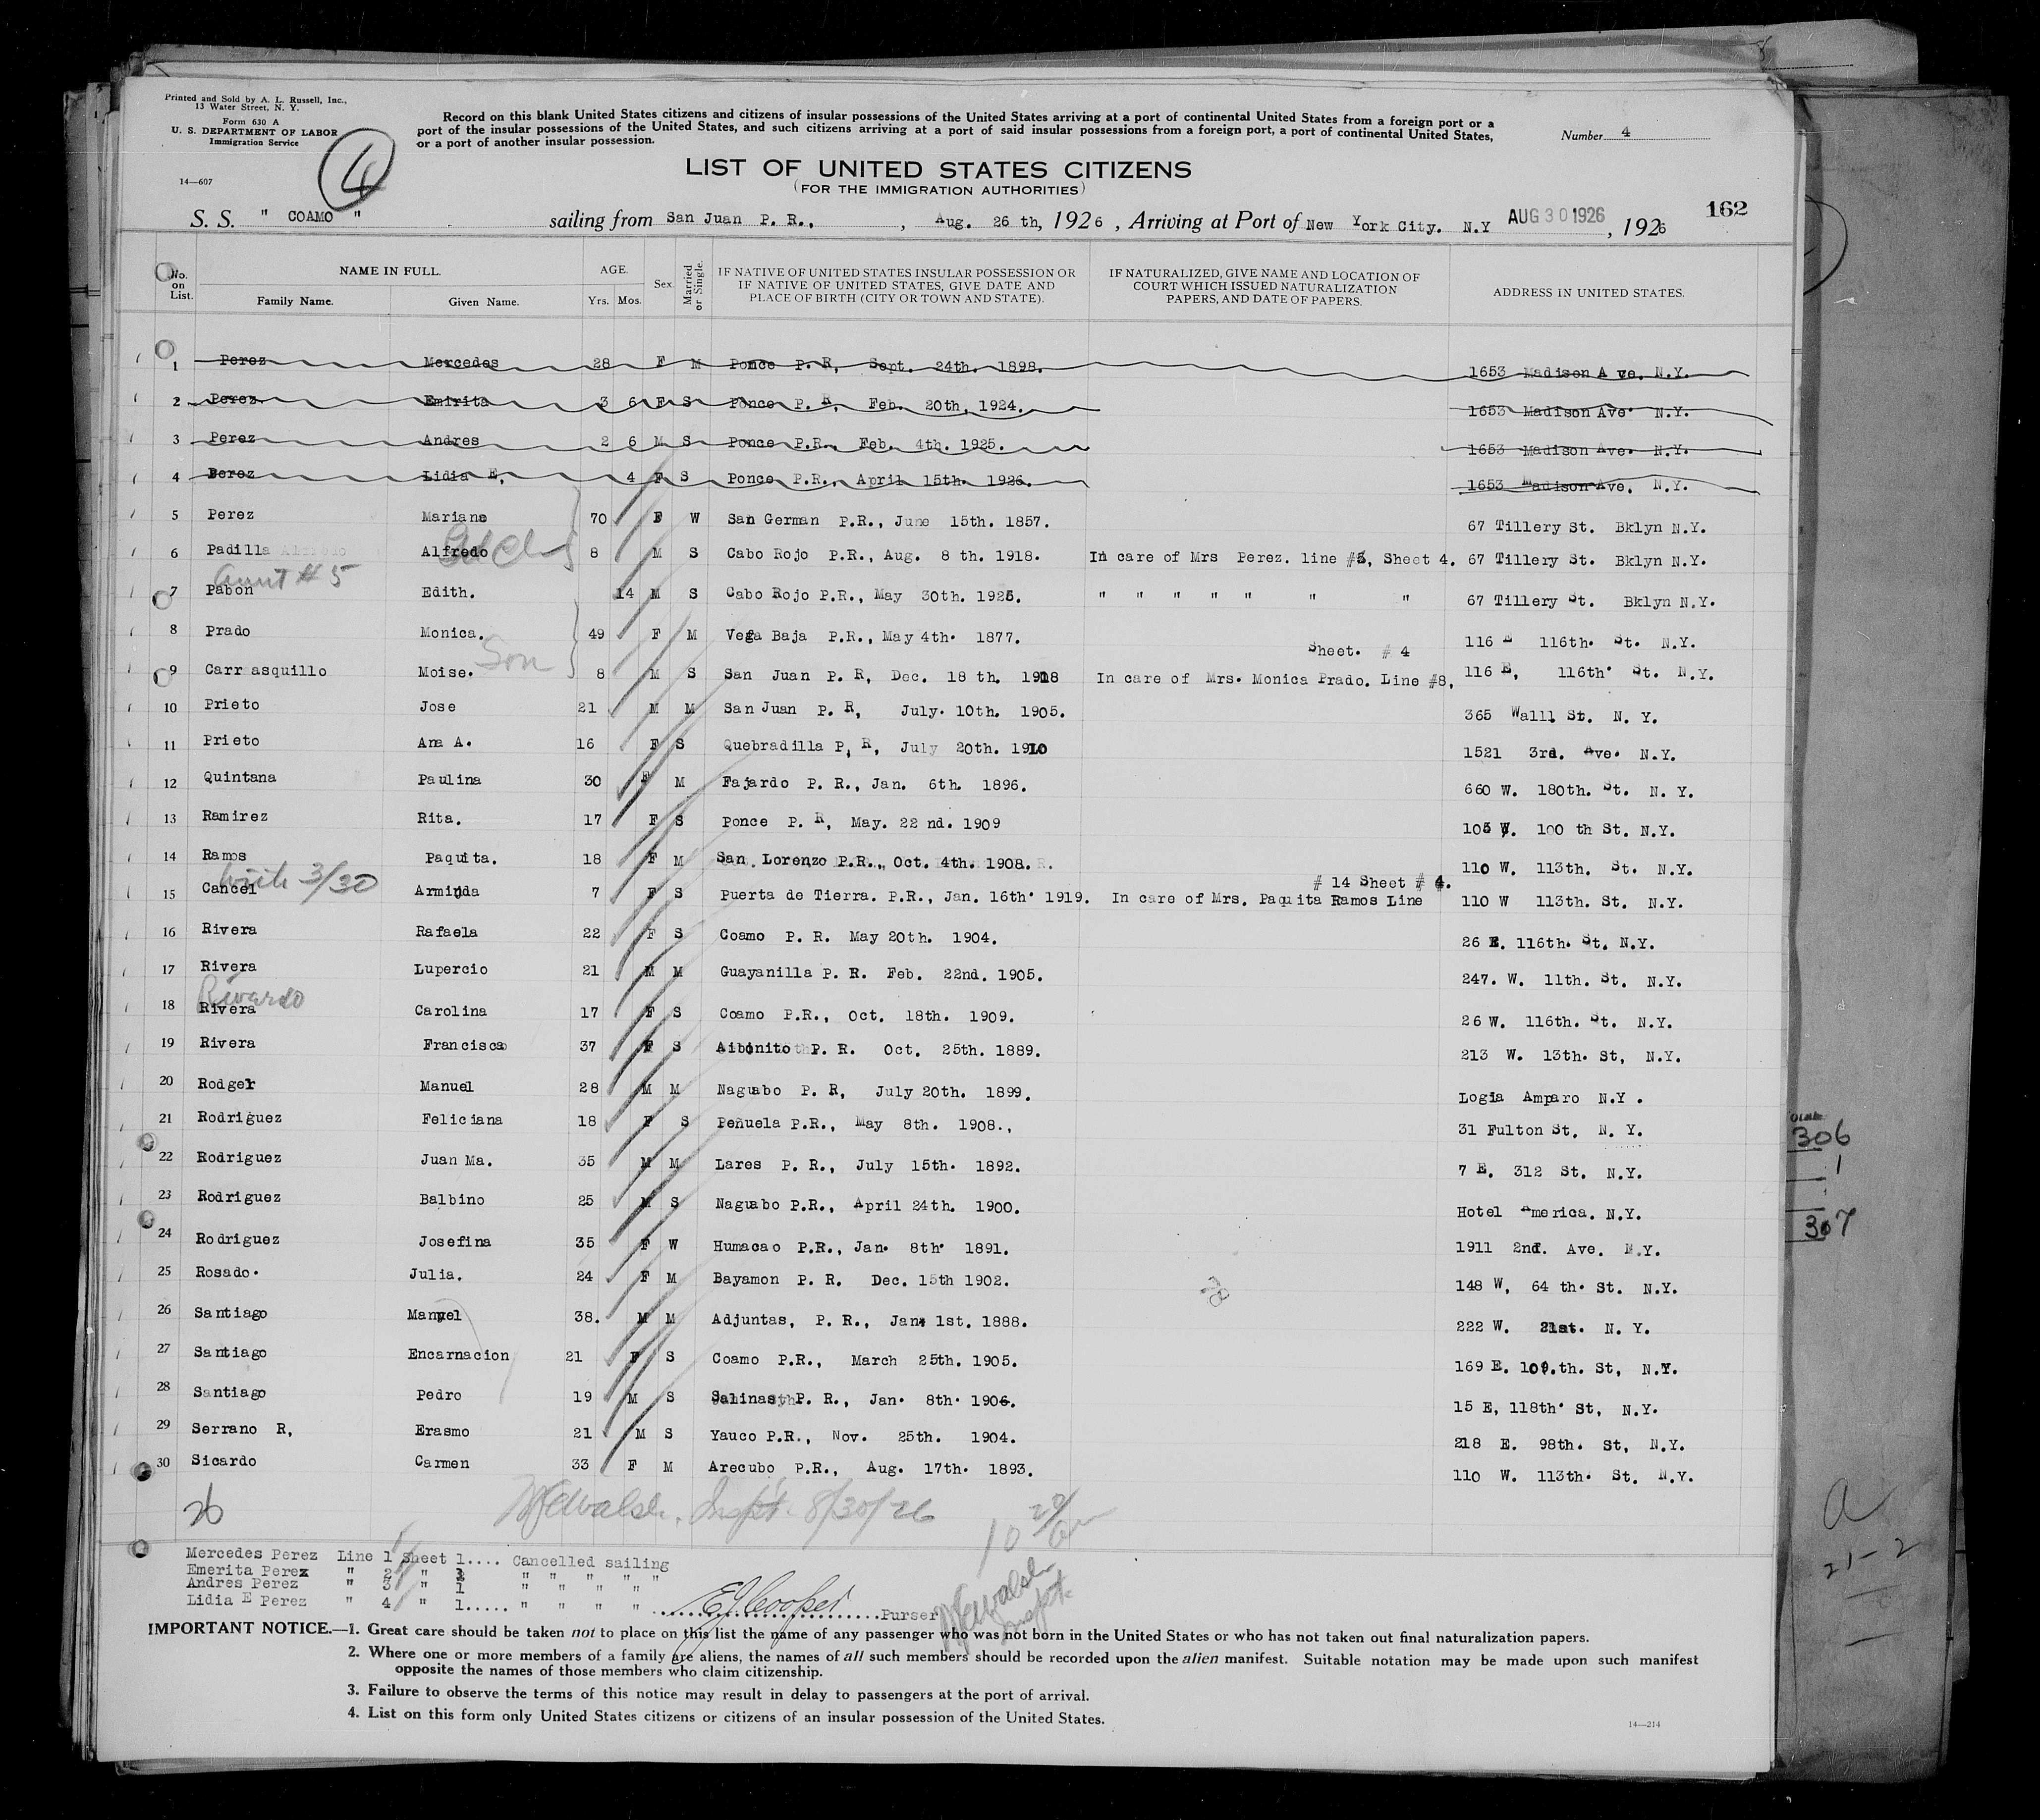 Printed and Sold by A. L. Russell, Inc.,
13 Water Street, N. Y.
Form 630 A
U. S. DEPARTMENT OF LABOR
Immigration Service
14—607
4
Record on this blank United States citizens and citizens of insular possessions of the United States arriving at a port of continental United States from a foreign port or a
port of the insular possessions of the United States, and such citizens arriving at a port of said insular possessions from a foreign port, a port of continental United States,
or a port of another insular possession.
Number 4
LIST OF UNITED STATES CITIZENS
(FOR THE IMMIGRATION AUTHORITIES)
162
S. S. " COAMO " sailing from San Juan P. R., , Aug. 26 th, 1926 , Arriving at Port of New York City. N.Y AUG 30 1926 , 1926
No. on List. NAME IN FULL. Family Name. Given Name. AGE. Yrs. Mos. Sex. Married or Single. IF NATIVE OF UNITED STATES INSULAR POSSESSION OR IF NATIVE OF UNITED STATES, GIVE DATE AND PLACE OF BIRTH (CITY OR TOWN AND STATE). IF NATURALIZED, GIVE NAME AND LOCATION OF COURT WHICH ISSUED NATURALIZATION PAPERS, AND DATE OF PAPERS. ADDRESS IN UNITED STATES.
1 Perez Mercedes 28 F M Ponce P. R, Sept. 24th. 1898. 1653 Madison A ve. N.Y.
2 Perez Emirita 3 6 F S Ponce P. R, Feb. 20th, 1924. 1653 Madison Ave. N.Y.
3 Perez Andres 2 6 M S Ponce P.R., Feb. 4th. 1925. 1653 Madison Ave. N.Y.
4 Perez Lidia E, 4 F S Ponce P.R., April 15th. 1926. 1653 Madison Ave. N.Y.
5 Perez Mariana 70 F W San German P.R., June 15th. 1857. 67 Tillery St. Bklyn N.Y.
6 Padilla Alfredo 8 M S Cabo Rojo P.R., Aug. 8 th. 1918. In care of Mrs Perez. line #5, Sheet 4. 67 Tillery St. Bklyn N.Y.
aunt #5
7 Pabon Edith. 14 M S Cabo Rojo P.R., May 30th. 1925. " " " " " " " 67 Tillery St. Bklyn N.Y.
8 Prado Monica. 49 F M Vega Baja P.R., May 4th. 1877. 116 E 116th. St. N.Y.
Son
Sheet. # 4
9 Carr asquillo Moise. 8 M S San Juan P. R, Dec. 18 th. 1918 In care of Mrs. Monica Prado. Line #8, 116 E, 116th. St. N.Y.
10 Prieto Jose 21 M M San Juan P. R, July. 10th. 1905. 365 Walll St. N. Y.
11 Prieto Ana A. 16 F S Quebradilla P, R, July 20th. 1910 1521 3rd. Ave. N.Y.
12 Quintana Paulina 30 F M Fajardo P. R., Jan. 6th. 1896. 660 W. 180th. St. N. Y.
13 Ramirez Rita. 17 F S Ponce P. R, May. 22 nd. 1909 105 W. 100 th St. N.Y.
14 Ramos Paquita. 18 F M San Lorenzo P.R., Oct. 4th. 1908. 110 W. 113th. St. N.Y.
3/30
# 14 Sheet # 4.
15 Cancel Arminda 7 F S Puerta de Tierra. P.R., Jan. 16th. 1919. In care of Mrs. Paquita Ramos Line 110 W 113th. St. N.Y.
16 Rivera Rafaela 22 F S Coamo P. R. May 20th. 1904. 26 E. 116th. St. N.Y.
17 Rivera Lupercio 21 M M Guayanilla P. R. Feb. 22nd. 1905. 247. W. 11th. St, N.Y.
18 Rivera Carolina 17 F S Coamo P.R., Oct. 18th. 1909. 26 W. 116th. St. N.Y.
19 Rivera Francisca 37 F S Aibonito P. R. Oct. 25th. 1889. 213 W. 13th. St, N.Y.
20 Rodger Manuel 28 M M Naguabo P. R, July 20th. 1899. Logia Amparo N.Y .
21 Rodriguez Feliciana 18 F S Peñuela P.R., May 8th. 1908., 31 Fulton St, N. Y.
22 Rodriguez Juan Ma. 35 M M Lares P. R., July 15th. 1892. 7 E. 312 St, N.Y.
23 Rodriguez Balbino 25 M S Naguabo P.R., April 24th. 1900. Hotel America. N.Y.
24 Rodriguez Josefina 35 F W Humacao P.R., Jan. 8th. 1891. 1911 2nd. Ave. N.Y.
25 Rosado. Julia. 24 F M Bayamon P. R. Dec. 15th 1902. 148 W, 64 th. St. N.Y.
26 Santiago Manuel 38. M M Adjuntas, P. R., Jan. 1st. 1888. 222 W. 21st. N. Y.
27 Santiago Encarnacion 21 F S Coamo P.R., March 25th. 1905. 169 E. 109.th. St, N.Y.
28 Santiago Pedro 19 M S Salinas P. R., Jan. 8th. 1906. 15 E, 118th. St, N.Y.
29 Serrano R, Erasmo 21 M S Yauco P.R., Nov. 25th. 1904. 218 E. 98th. St, N.Y.
30 Sicardo Carmen 33 F M Arecubo P.R., Aug. 17th. 1893. 110 W. 113th. St. N.Y.
26 Inspt. 8/30/26
Mercedes Perez Line 1 Sheet 1.... Cancelled sailing
Emerita Perez " 2 " 1 " " " " "
Andres Perez " 3 " 1 " " " " "
Lidia E Perez " 4 " 1..... " " " " Purser
IMPORTANT NOTICE.—1. Great care should be taken not to place on this list the name of any passenger who was not born in the United States or who has not taken out final naturalization papers.
2. Where one or more members of a family are aliens, the names of all such members should be recorded upon the alien manifest. Suitable notation may be made upon such manifest
opposite the names of those members who claim citizenship.
3. Failure to observe the terms of this notice may result in delay to passengers at the port of arrival.
4. List on this form only United States citizens or citizens of an insular possession of the United States.
14—214
306
1
307